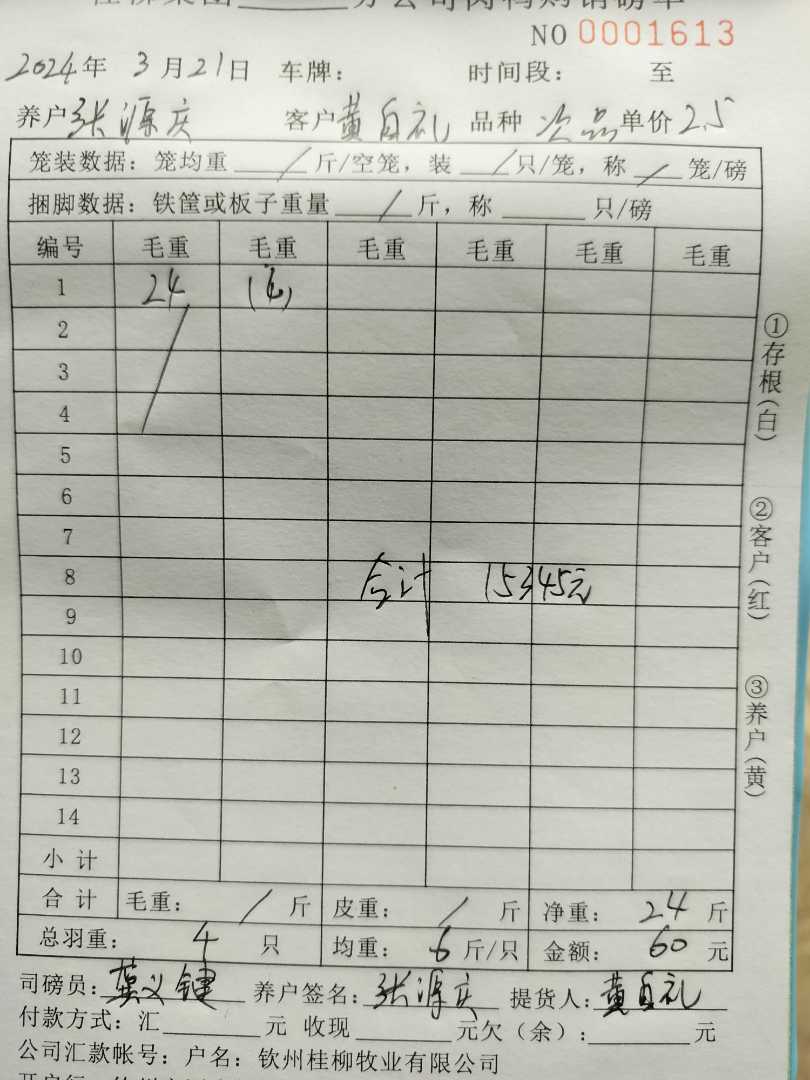 桂柳集团______分公司肉鸭购销磅单
NO 0001613
2024年 3月21日 车牌： 时间段： 至
养户 张源庆 客户 黄自礼 品种 次品 单价 2.5
笼装数据：笼均重 / 斤/空笼，装 / 只/笼，称 / 笼/磅
捆脚数据：铁筐或板子重量 / 斤，称______只/磅
编号 毛重 毛重 毛重 毛重 毛重 毛重
1 24 (4)
2
3
4
5
6
7
8 合计 15345元
9
10
11
12
13
14
小计
合计 毛重： / 斤 皮重： / 斤 净重： 24 斤
总羽重： 4 只 均重： 6 斤/只 金额： 60 元
司磅员： 养户签名：张源庆 提货人：黄自礼
付款方式：汇______元 收现______元欠（余）：______元
公司汇款帐号：户名：钦州桂柳牧业有限公司
开户行：
①存根（白）
②客户（红）
③养户（黄）